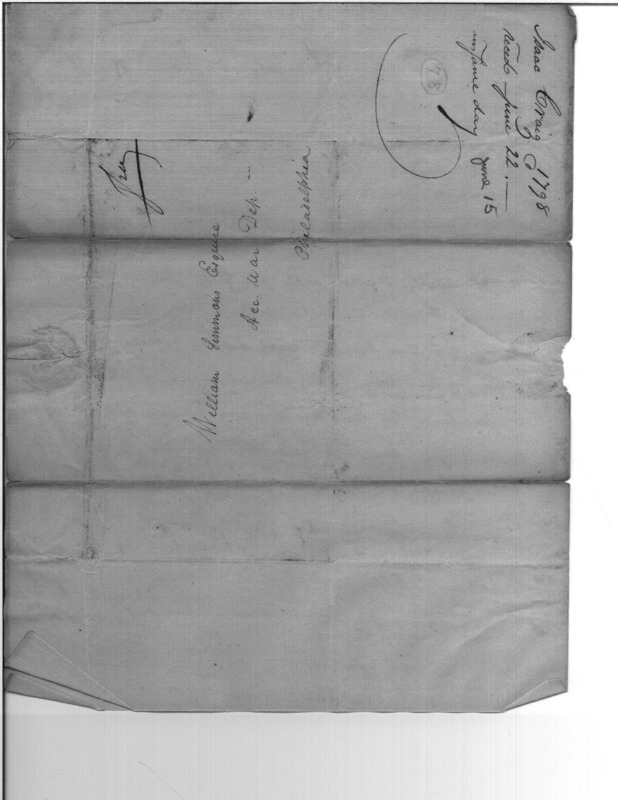 Isaac Craig 1798
recd - June 22. —
ans same day June 15
78
Free
William Simmons Esquire
Acc War Dep. --
Philadelphia